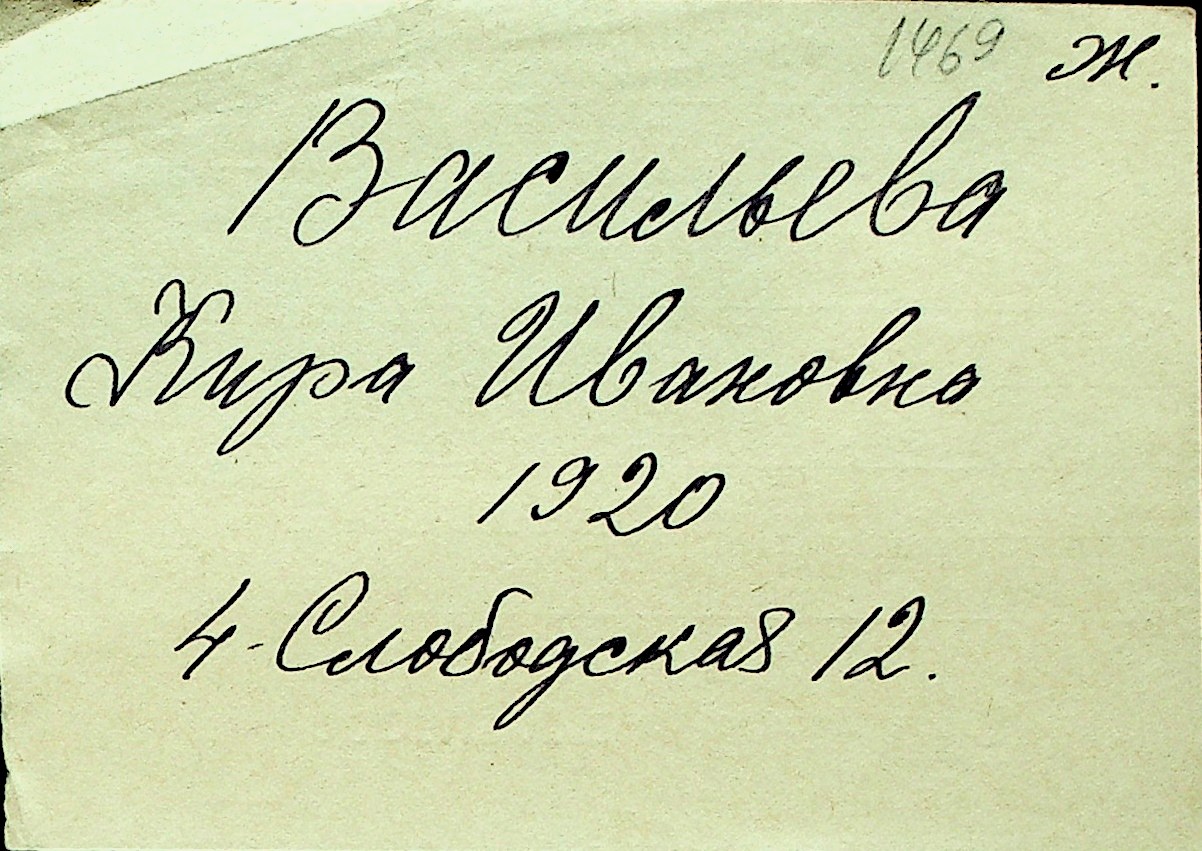 1469 ж.
Васильева
Кира Ивановна
1920
4-Слободская 12.